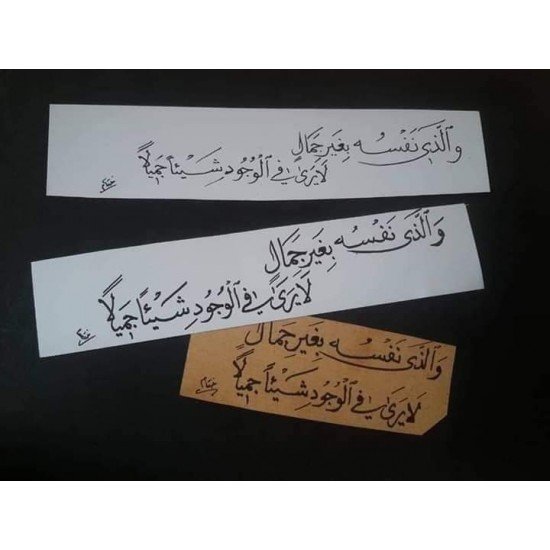 وَٱلَّذِى نَفْسُهُ بِغَيرِ جَمَالٍ
لَا يَرَىٰ فِي ٱلْوُجُودِ شَيْئاً جَمِيلًا
وَٱلَّذِى نَفْسُهُ بِغَيرِ جَمَالٍ
لَا يَرَىٰ فِي ٱلْوُجُودِ شَيْئاً جَمِيلًا
وَٱلَّذِى نَفْسُهُ بِغَيرِ جَمَالٍ
لَا يَرَىٰ فِي ٱلْوُجُودِ شَيْئاً جَمِيلًا